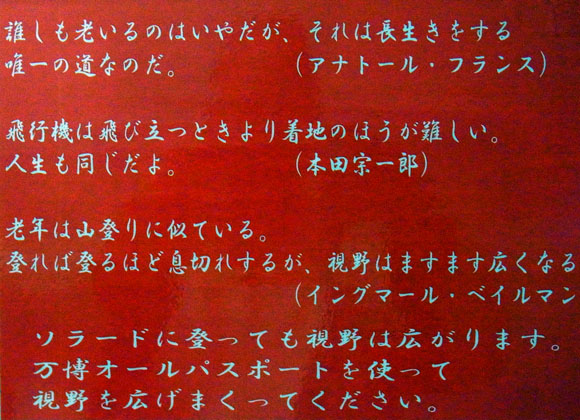 誰しも老いるのはいやだが、それは長生きをする
唯一の道なのだ。 (アナトール・フランス)
飛行機は飛び立つときより着地のほうが難しい。
人生も同じだよ。 (本田宗一郎)
老年は山登りに似ている。
登れば登るほど息切れするが、視野はますます広くなる
(イングマール・ベイルマン
ソラードに登っても視野は広がります。
万博オールパスポートを使って
視野を広げまくってください。